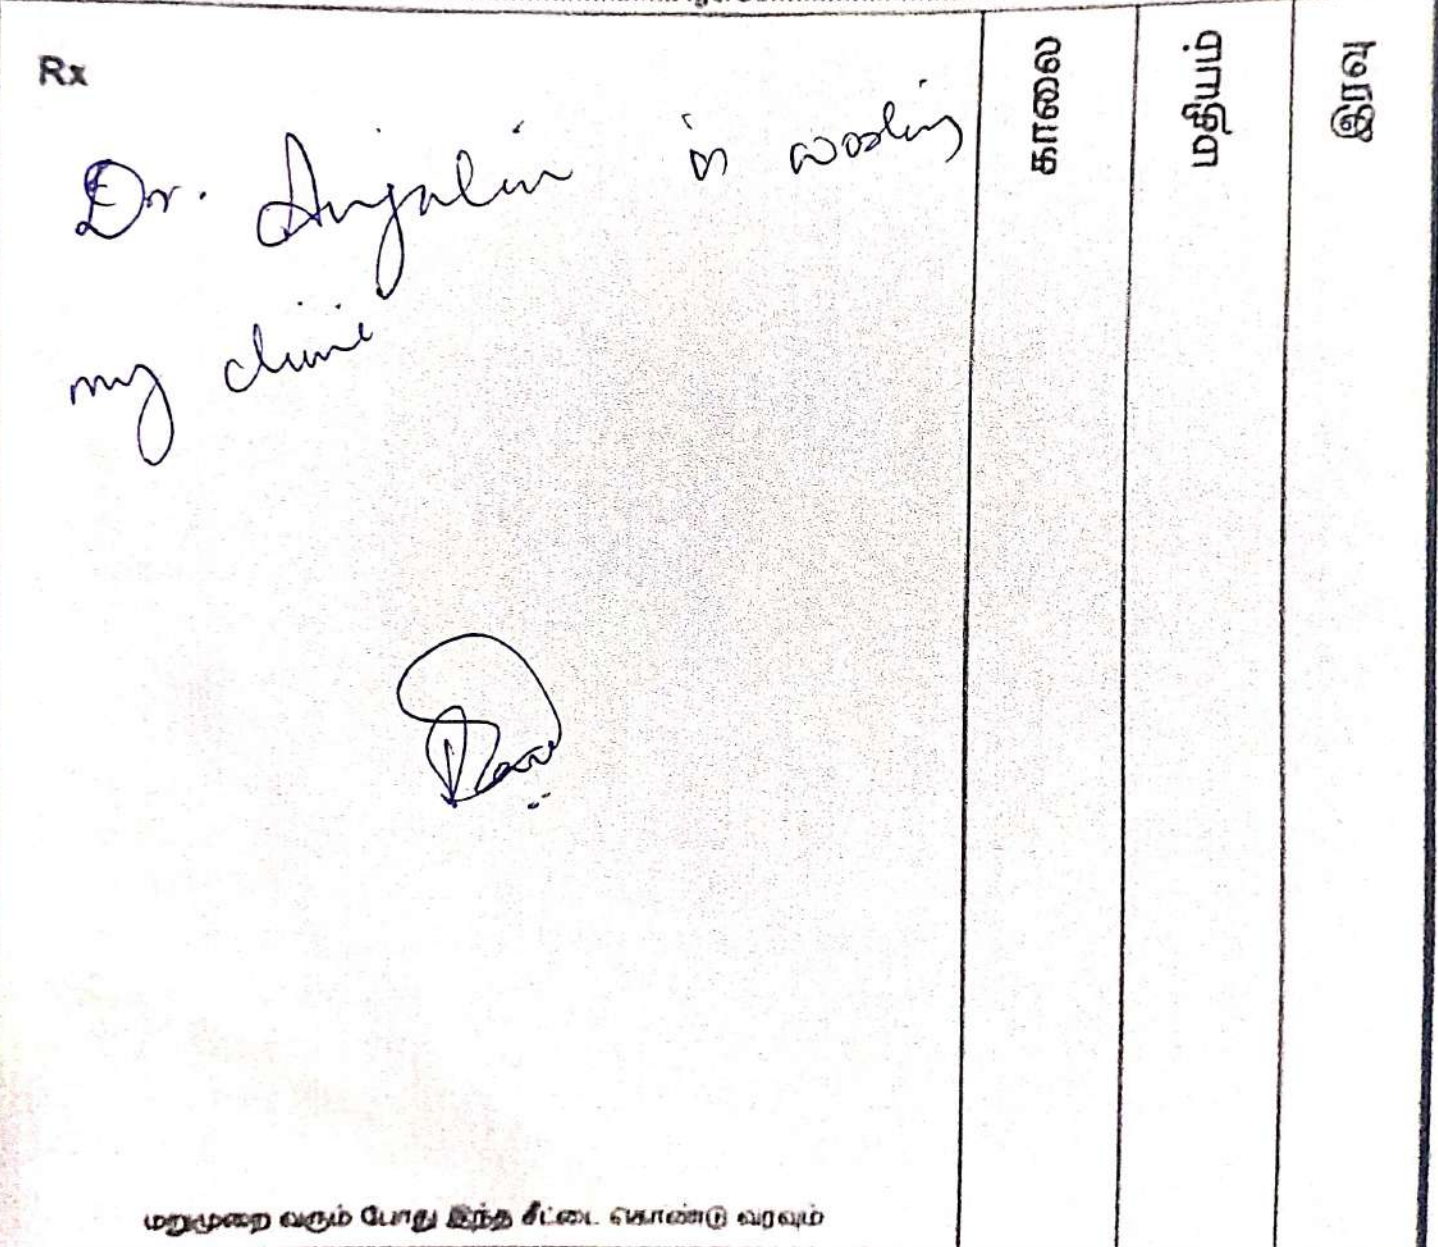 Rx
காலை
மதியம்
இரவு
Dr. Anjalin is working
my clinic
மறுமுறை வரும் போது இந்த சீட்டை கொண்டு வரவும்